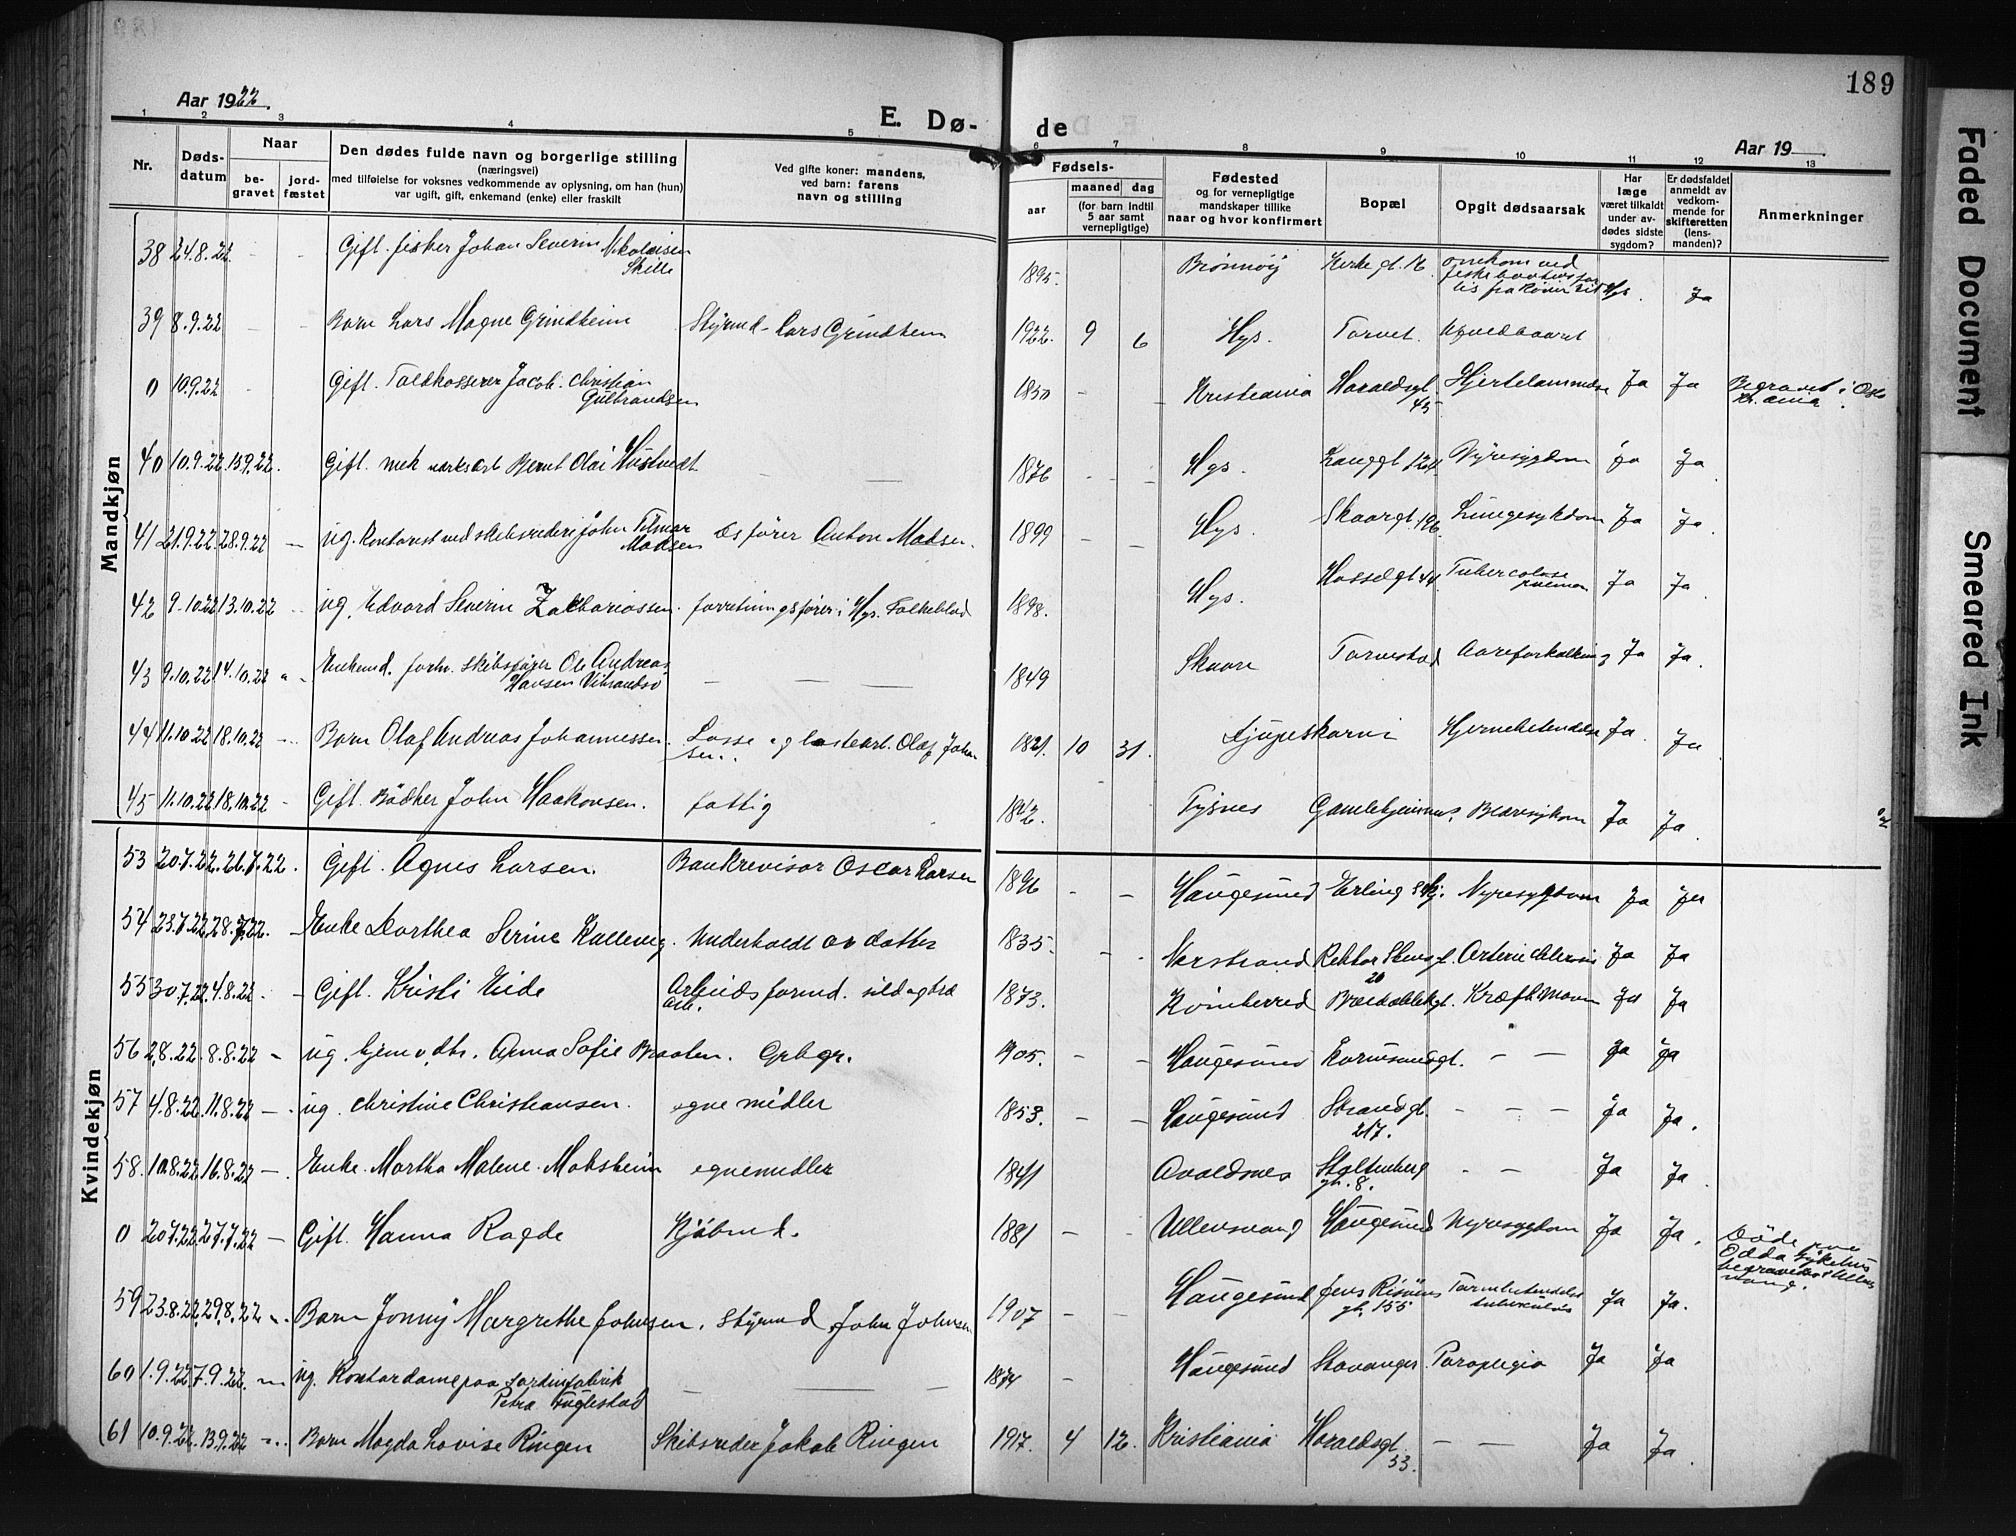 189
Aar 1922.
E. Dø-
de
Aar 19
Faded Document
Smeared Ink
1 2 3 4 5 6 7 8 9 10 11 12 13
Nr.
Døds-
datum
Naar
be-
gravet
jord-
fæstet
Den dødes fulde navn og borgerlige stilling
(næringsvei)
med tilføielse for voksnes vedkommende av oplysning, om han (hun)
var ugift, gift, enkemand (enke) eller fraskilt
Ved gifte koner: mandens,
ved barn: farens
navn og stilling
Fødsels-
aar
maaned
dag
(for barn indtil
5 aar samt
vernepligtige)
Fødested
og for vernepligtige
mandskaper tillike
naar og hvor konfirmert
Bopæl
Opgit dødsaarsak
Har
læge
været tilkaldt
under av-
dødes sidste
sygdom?
Er dødsfaldet
anmeldt av
vedkom-
mende for
skifteretten
(lens-
manden)?
Anmerkninger
Mandkjøn
38 24.8.22 - - Gift. fisker Johan Severin Nikolaisen
Skille
1895. Brønnøy Kirkegt. omkom ved
Hgs. Ja
39 8.9.22 - - Barn Lars Magne Grindheim Styrmd. Lars Grindheim 1922. 9 6 Hgs. Torvet.
0 10.9.22 - Gift. Toldkasserer Jacob Christian
Gulbrandsen
1850 - - Kristiania Haraldsgt.
45
Hjertelammelse Ja Ja Begravet i Oslo
Kr.ania.
40 10.9.22 15.9.22. Gift. mek. verksarb. Bernt Olai Hustvedt - 1876 - - Hgs. Langgt 124 Nyresygdom Ja Ja
41 21.9.22 28.9.22 - ug. Kontorist ved skibsrederi John Tilmar
Madsen
Anton Madsen. 1899 - - Hgs. Skaaregt. 196 Lungesykdom Ja Ja
42 9.10.22 13.10.22 - ug. Edvard Severin Zachariassen. forretningsfører i Hgs. Folkeblad 1898. Hgs. Hasselgt 44 Tuberculose
pulmon
Ja Ja
43 9.10.22 14.10.22 Enkemd. forhv. skibsfører Ole Andreas
Hansen Vibrandsö
- - - 1849 Skaare Torvestad Aareforkalkning Ja Ja.
44 11.10.22 18.10.22 - Barn Olaf Andreas Johannessen. Losse og lastearb. Olaf Johan
sen.
1821. 10 31. Djupeskarvi Hjernebetendelse Ja Ja
45 11.10.22 18.10.22 - Gift. Bödker John Haakonsen. fattig 1842. Tysnes Gamlehjemmet, Blæresykdom Ja Ja.
Kvindekjøn
53 20.7.22. 26.7.22. Gift. Agnes Larsen. Bankrevisor Oscar Larsen 1896 - - Haugesund Erling Skj. Nyresygdom Ja Ja
54 23.7.22. 28.7.22. - Enke Dorthea Serine Kallevig. Underholdt av datter 1835. - - Nerstrand Rektor Stensgt.
20
Arteriesclerose Ja Ja
55 30.7.22. 4.8.22. - Gift. Kristi Eide Arbeidsformd. sild og træ
arb.
1873. Kvinherred Breidablikgt. Kræft i Maven Ja Ja
56 2.8.22. 8.8.22 - ug. hjemv. dtr. Anna Sofie Braaten. Grbgr. 1905. - - Haugesund Karmsundgt. - - Ja Ja
57 4.8.22. 11.8.22 - ug. Christine Christiansen. egne midler 1853. - - Haugesund Strandgt.
217.
- - - Ja Ja.
58. 10.8.22. 16.8.22 - Enke. Martha Malene Moksheim egne midler 1841 Avaldsnes Stoltenberg
gt. 8.
- - Ja Ja
0 20.7.22. 27.7.22 - Gift. Hanna Ragde Kjøbmd. 1881 - Ullensvang Haugesund Nyresygdom Ja Ja. Døde paa
Odda sykehus
begravet i Ullens
vang.
59 23.8.22. 29.8.22 Barn Jonny Margrethe Johnsen. Styrmd John Johnsen 1907 - - Haugesund Jens Risøens
gt. 155
Tarmbetendelse
tuberculøs
Ja Ja.
60 1.9.22 7.9.22. ug. Kontordame paa sardinfabrik
Petra Fuglestad
- - - 1874 - Haugesund Stavanger. Paraplegia Ja Ja
61 10.9.22. 13.9.22 Barn Magda Lovise Ringen Skibsreder Jakob Ringen 1917. 4 12. Kristiania Haraldsgt.
53.
- - Ja Ja